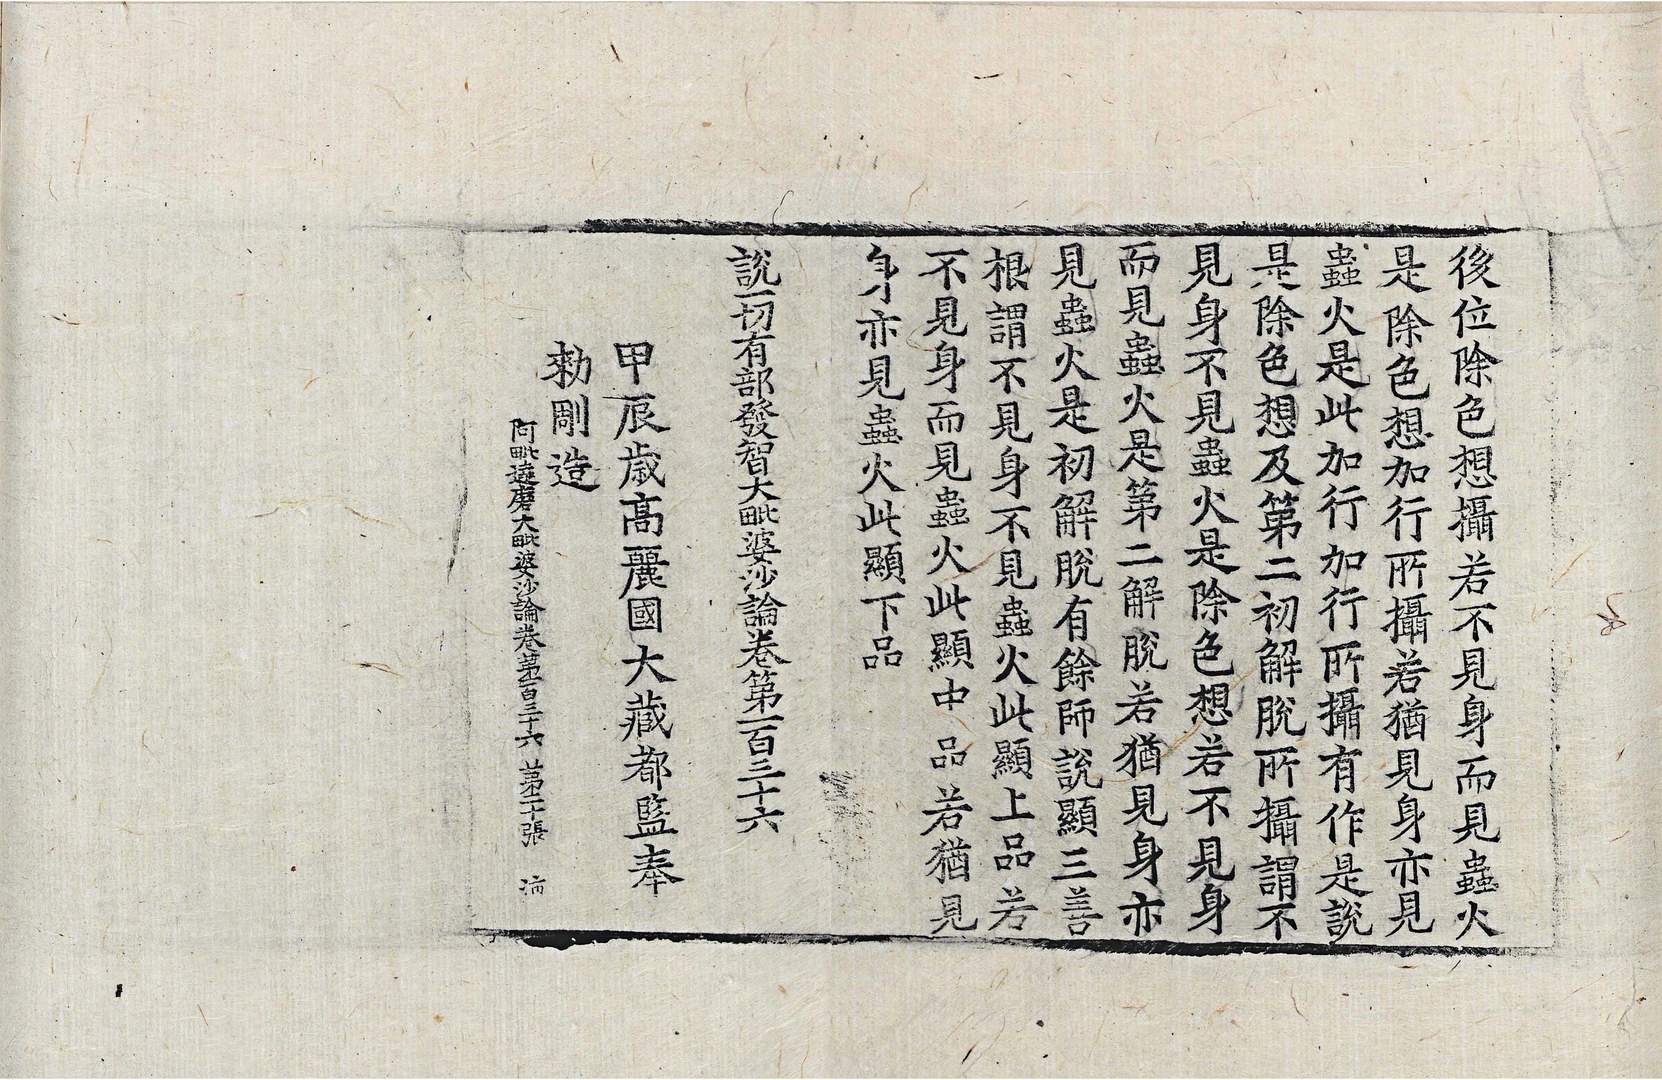 後位除色想攝若不見身而見蟲火
是除色想加行所攝若猶見身亦見
蟲火是此加行加行所攝有作是說
是除色想及第二初解脫所攝謂不
見身不見蟲火是除色想若不見身
而見蟲火是第二解脫若猶見身亦
見蟲火是初解脫有餘師說顯三善
根謂不見身不見蟲火此顯上品若
不見身而見蟲火此顯中品若猶見
身亦見蟲火此顯下品
說一切有部發智大毗婆沙論卷第一百三十六
甲辰歲高麗國大藏都監奉
勅剛造
阿毗達磨大毗婆沙論卷第一百三十六 第二十張 沛